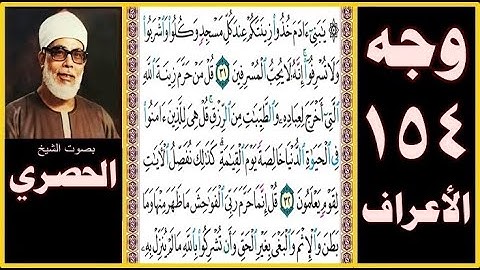 وجه
١٥٤
الأعراف
يَٰبَنِىٓ ءَادَمَ خُذُوا۟ زِينَتَكُمْ عِندَ كُلِّ مَسْجِدٍ وَكُلُوا۟ وَٱشْرَبُوا۟
وَلَا تُسْرِفُوٓا۟ إِنَّهُۥ لَا يُحِبُّ ٱلْمُسْرِفِينَ ٣١ قُلْ مَنْ حَرَّمَ زِينَةَ ٱللَّهِ
ٱلَّتِىٓ أَخْرَجَ لِعِبَادِهِۦ وَٱلطَّيِّبَٰتِ مِنَ ٱلرِّزْقِ قُلْ هِىَ لِلَّذِينَ ءَامَنُوا۟
فِى ٱلْحَيَوٰةِ ٱلدُّنْيَا خَالِصَةً يَوْمَ ٱلْقِيَٰمَةِ كَذَٰلِكَ نُفَصِّلُ ٱلْءَايَٰتِ
لِقَوْمٍ يَعْلَمُونَ ٣٢ قُلْ إِنَّمَا حَرَّمَ رَبِّىَ ٱلْفَوَٰحِشَ مَا ظَهَرَ مِنْهَا وَمَا
بَطَنَ وَٱلْإِثْمَ وَٱلْبَغْىَ بِغَيْرِ ٱلْحَقِّ وَأَن تُشْرِكُوا۟ بِٱللَّهِ مَا لَمْ يُنَزِّلْ بِهِۦ
بصوت الشيخ
الحصري